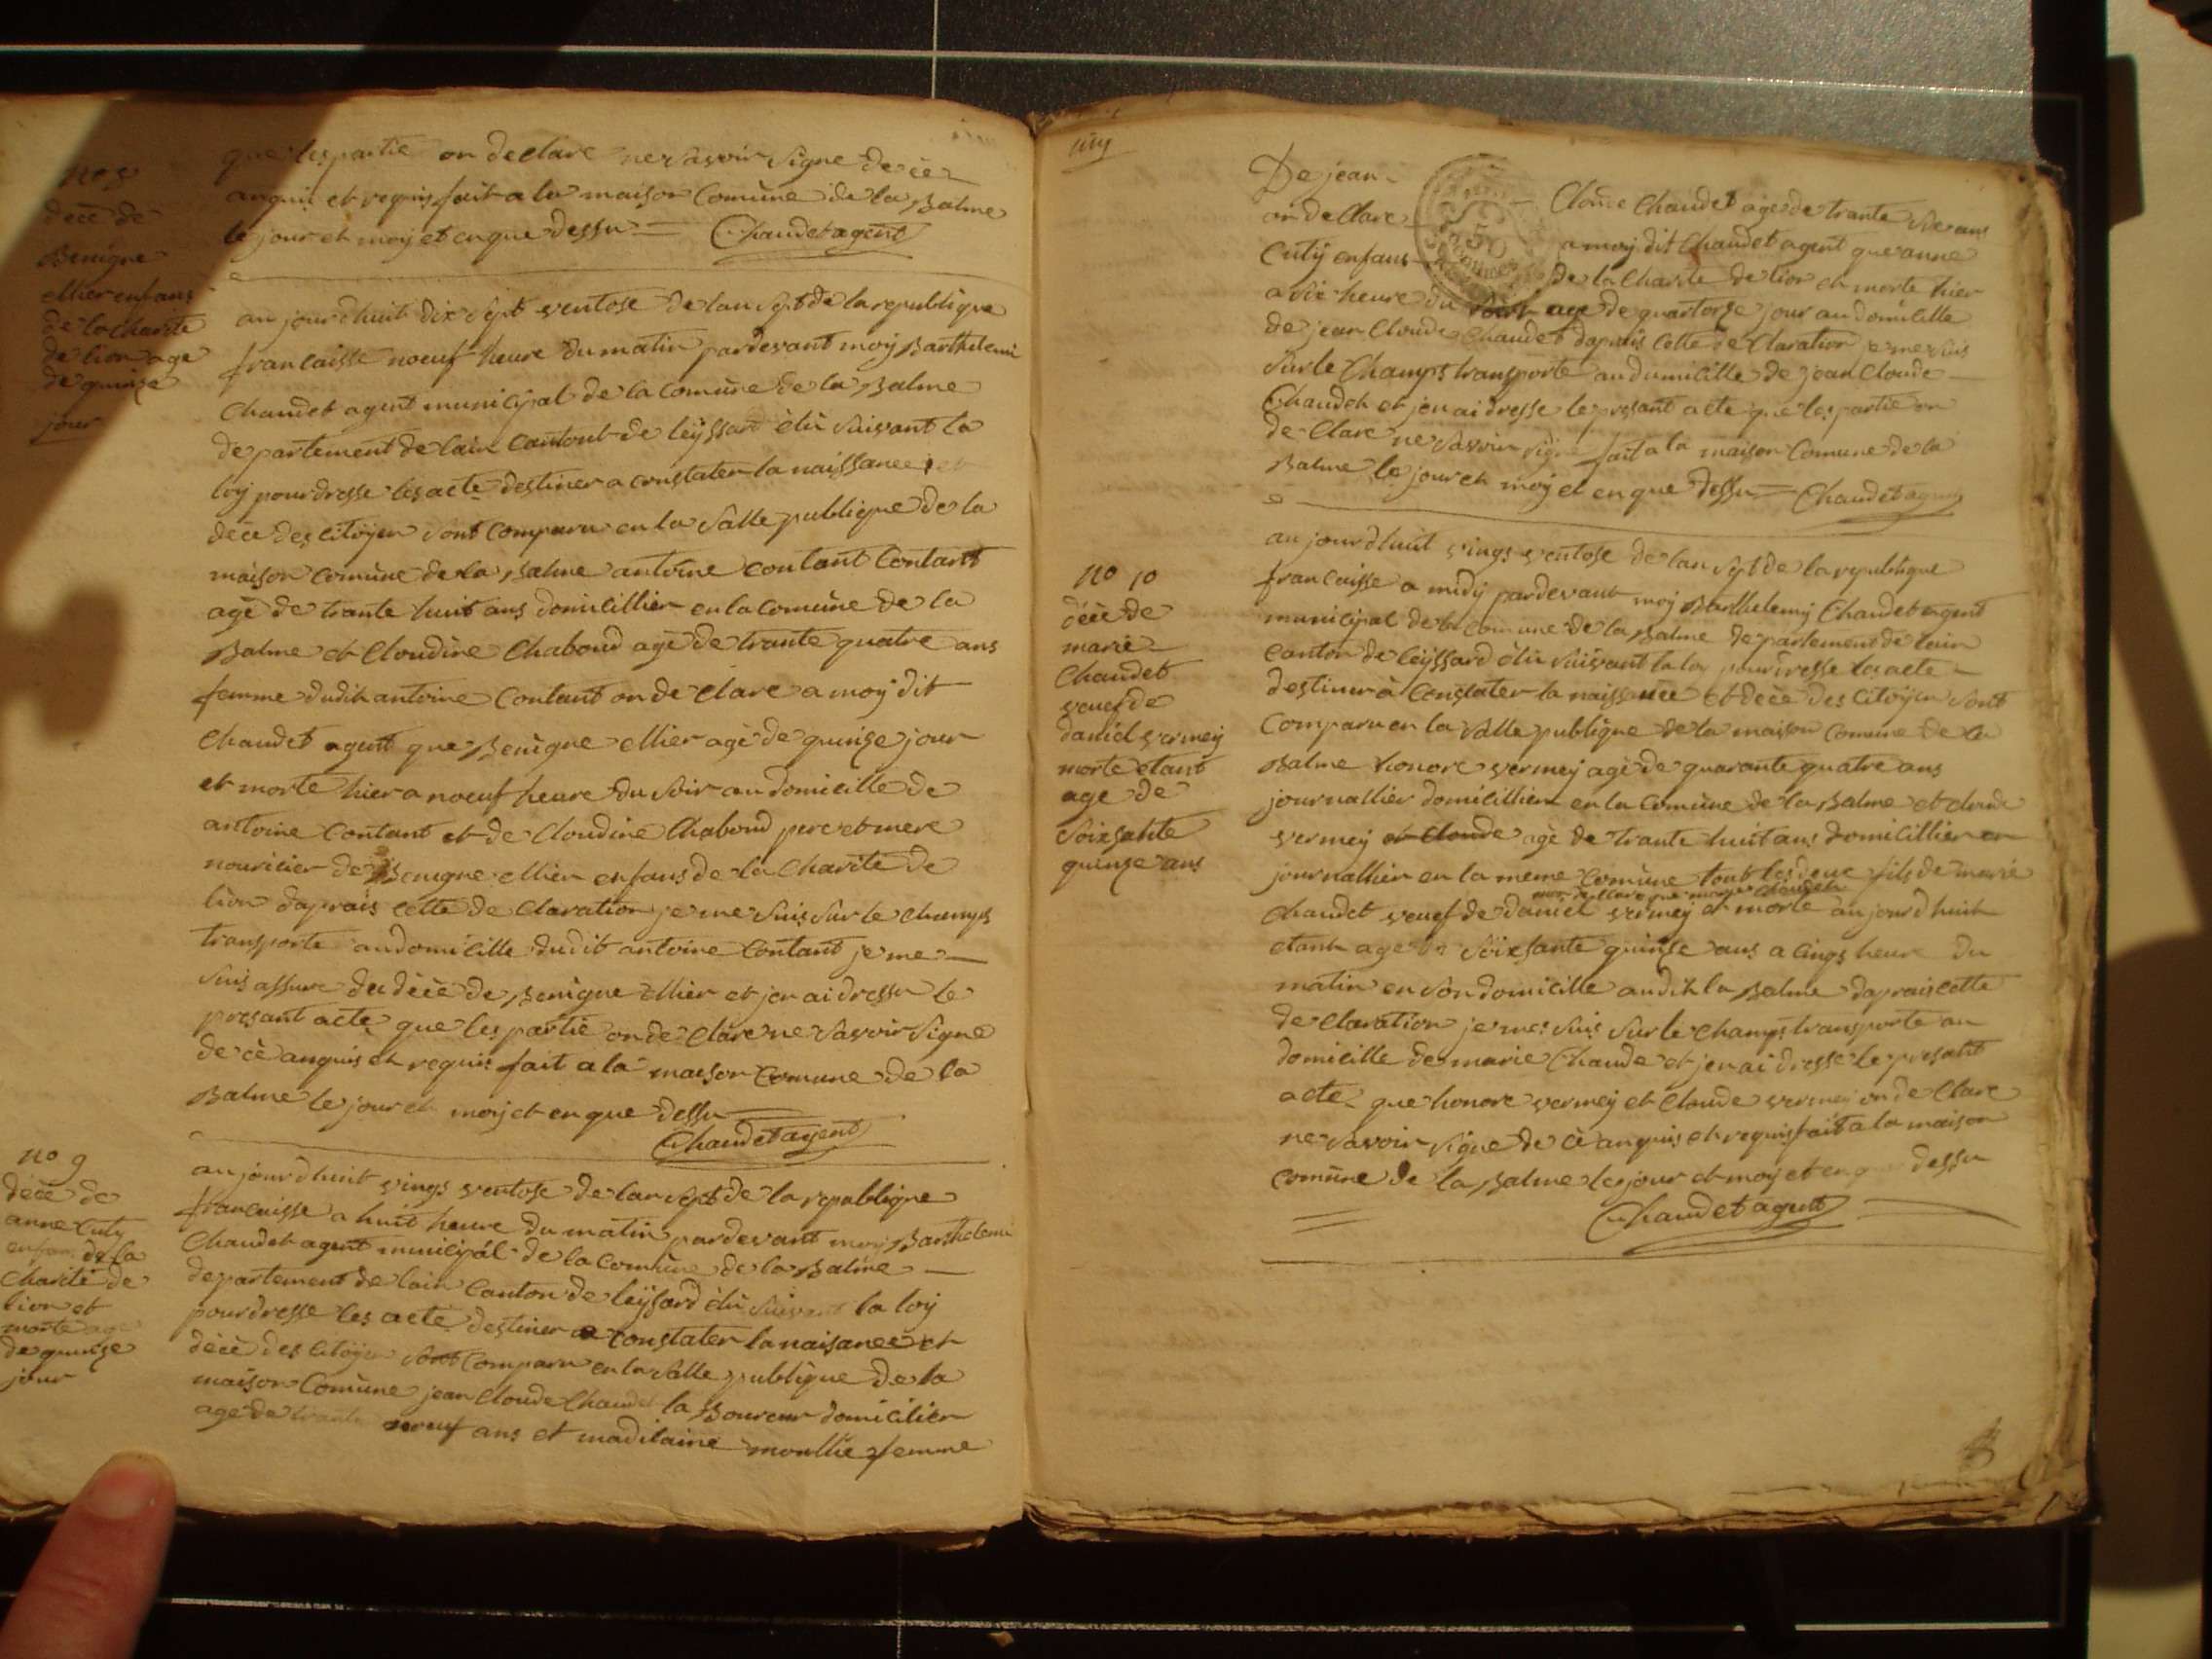 que les partie on declare ne savoir signe de cè
anquis et requis fait a la maison Comune de la Balme
le jour et moy et en que dessu = Chaudet agent
no 8
décè de
Benigne
ellier enfans
de la charite
de lion age
de quinze
jour
au jourdhuit dix sept ventose de lan sept de la republique
francaisse noeuf heure du matin pardevant moy Barthelemi
Chaudet agent municipal de la Comune de la Balme
departement de lain Cantont de leyssard élu suivant la
loy pour dresse les acte destiner a constater la naissance et
décè des citoyen sont comparu en la salle publique de la
maison comune de la Balme antoine contant Contant
agé de trante huit ans domicillier en la Comune de la
Balme et Cloudine Chaboud agé de trante quatre ans
femme dudit antoine Contant on de clare a moy dit
Chaudet agent que Benigne ellier agé de quinse jour
et morte hier a noeuf heure du soir au domicille de
antoine Contant et de Cloudine Chaboud pere et mere
nouricier de Benigne ellier enfans de la Charite de
lion daprais cette de Claration je me suis sur le champs
transporte au domicille dudit antoine Contant je me
suis assure du décè de Benigne ellier et jen ai dressu le
presant acte que les partie on de Clare ne savoir signe
de cè anquis et requis fait a la maison Comune de la
Balme le jour et moy et en que dessu
Chaudet agent
no 9
décè de
anne Cuty
enfan de la
Charité de
lion et
morte age
de quinse
jour
au jourdhuit vings ventose de lan sept de la republique
francaisse a huit heure du matin pardevant moy Barthelemi
Chaudet agent municipal de la Comune de la Balme
departement de lain Canton de leyssard élu suivant la loy
pour dresse les acte destiner a constater la naisance et
décè des citoyen sont Comparu en la salle publique de la
maison Comune jean Cloude Chaudet la Boureur domicilier
age de trante noeuf ans et madilaine moullie femme
De jean Cloude Chaudet age de trante six ans
on de Clare a moy dit Chaudet agent que anne
Cuty enfans de la Charite de lion et morte hier
a six heure du soir age de quartorse jour au domicille
de jean Cloude Chaudet daprais cette de Claration je me suis
sur le Champs transporte au dumicille de jean Cloude
Chaudet et jen ai dresse le presant acte que les partie on
de Clare ne savoir signe fait a la maison Comune de la
Balme le jour et moy et en que dessu = Chaudet agent
no 10
décè de
marie
Chaudet
veuef de
daniel vermey
morte etant
age de
soixsante
quinse ans
au jourdhuit vings ventose de lan sept de la republique
francaisse a midy pardevant moy Barthelemy Chaudet agent
municipal de la comune de la Balme departement de lain
Canton de leyssard élu suivant la loy pour dresse les acte
destiner à constater la naissance et décè des citoyen sont
Comparu en la salle publique de la maison Comune de la
Balme honore vermey agé de quarante quatre ans
journallier domicillier en la Comune de la Balme et cloude
vermey et Cloude agé de trante huit ans domicillier en
journallier en la meme Comune tout les deue fils de marie
mon declare que marie chaudet
Chaudet veuef de daniel vermey et morte au jourdhuit
etant age de soixsante quinse ans a cings heure du
matin en son domicille audit la Balme daprais cette
de claration je mes suis sur le champs transporte au
domicille de marie Chaude et jen ai dresse le presant
acte que honore vermey et Claude vermey on de Clare
ne savoir signe de cè anquis et requis fait a la maison
comune de la Balme le jour et moy et en que dessu
Chaudet agent